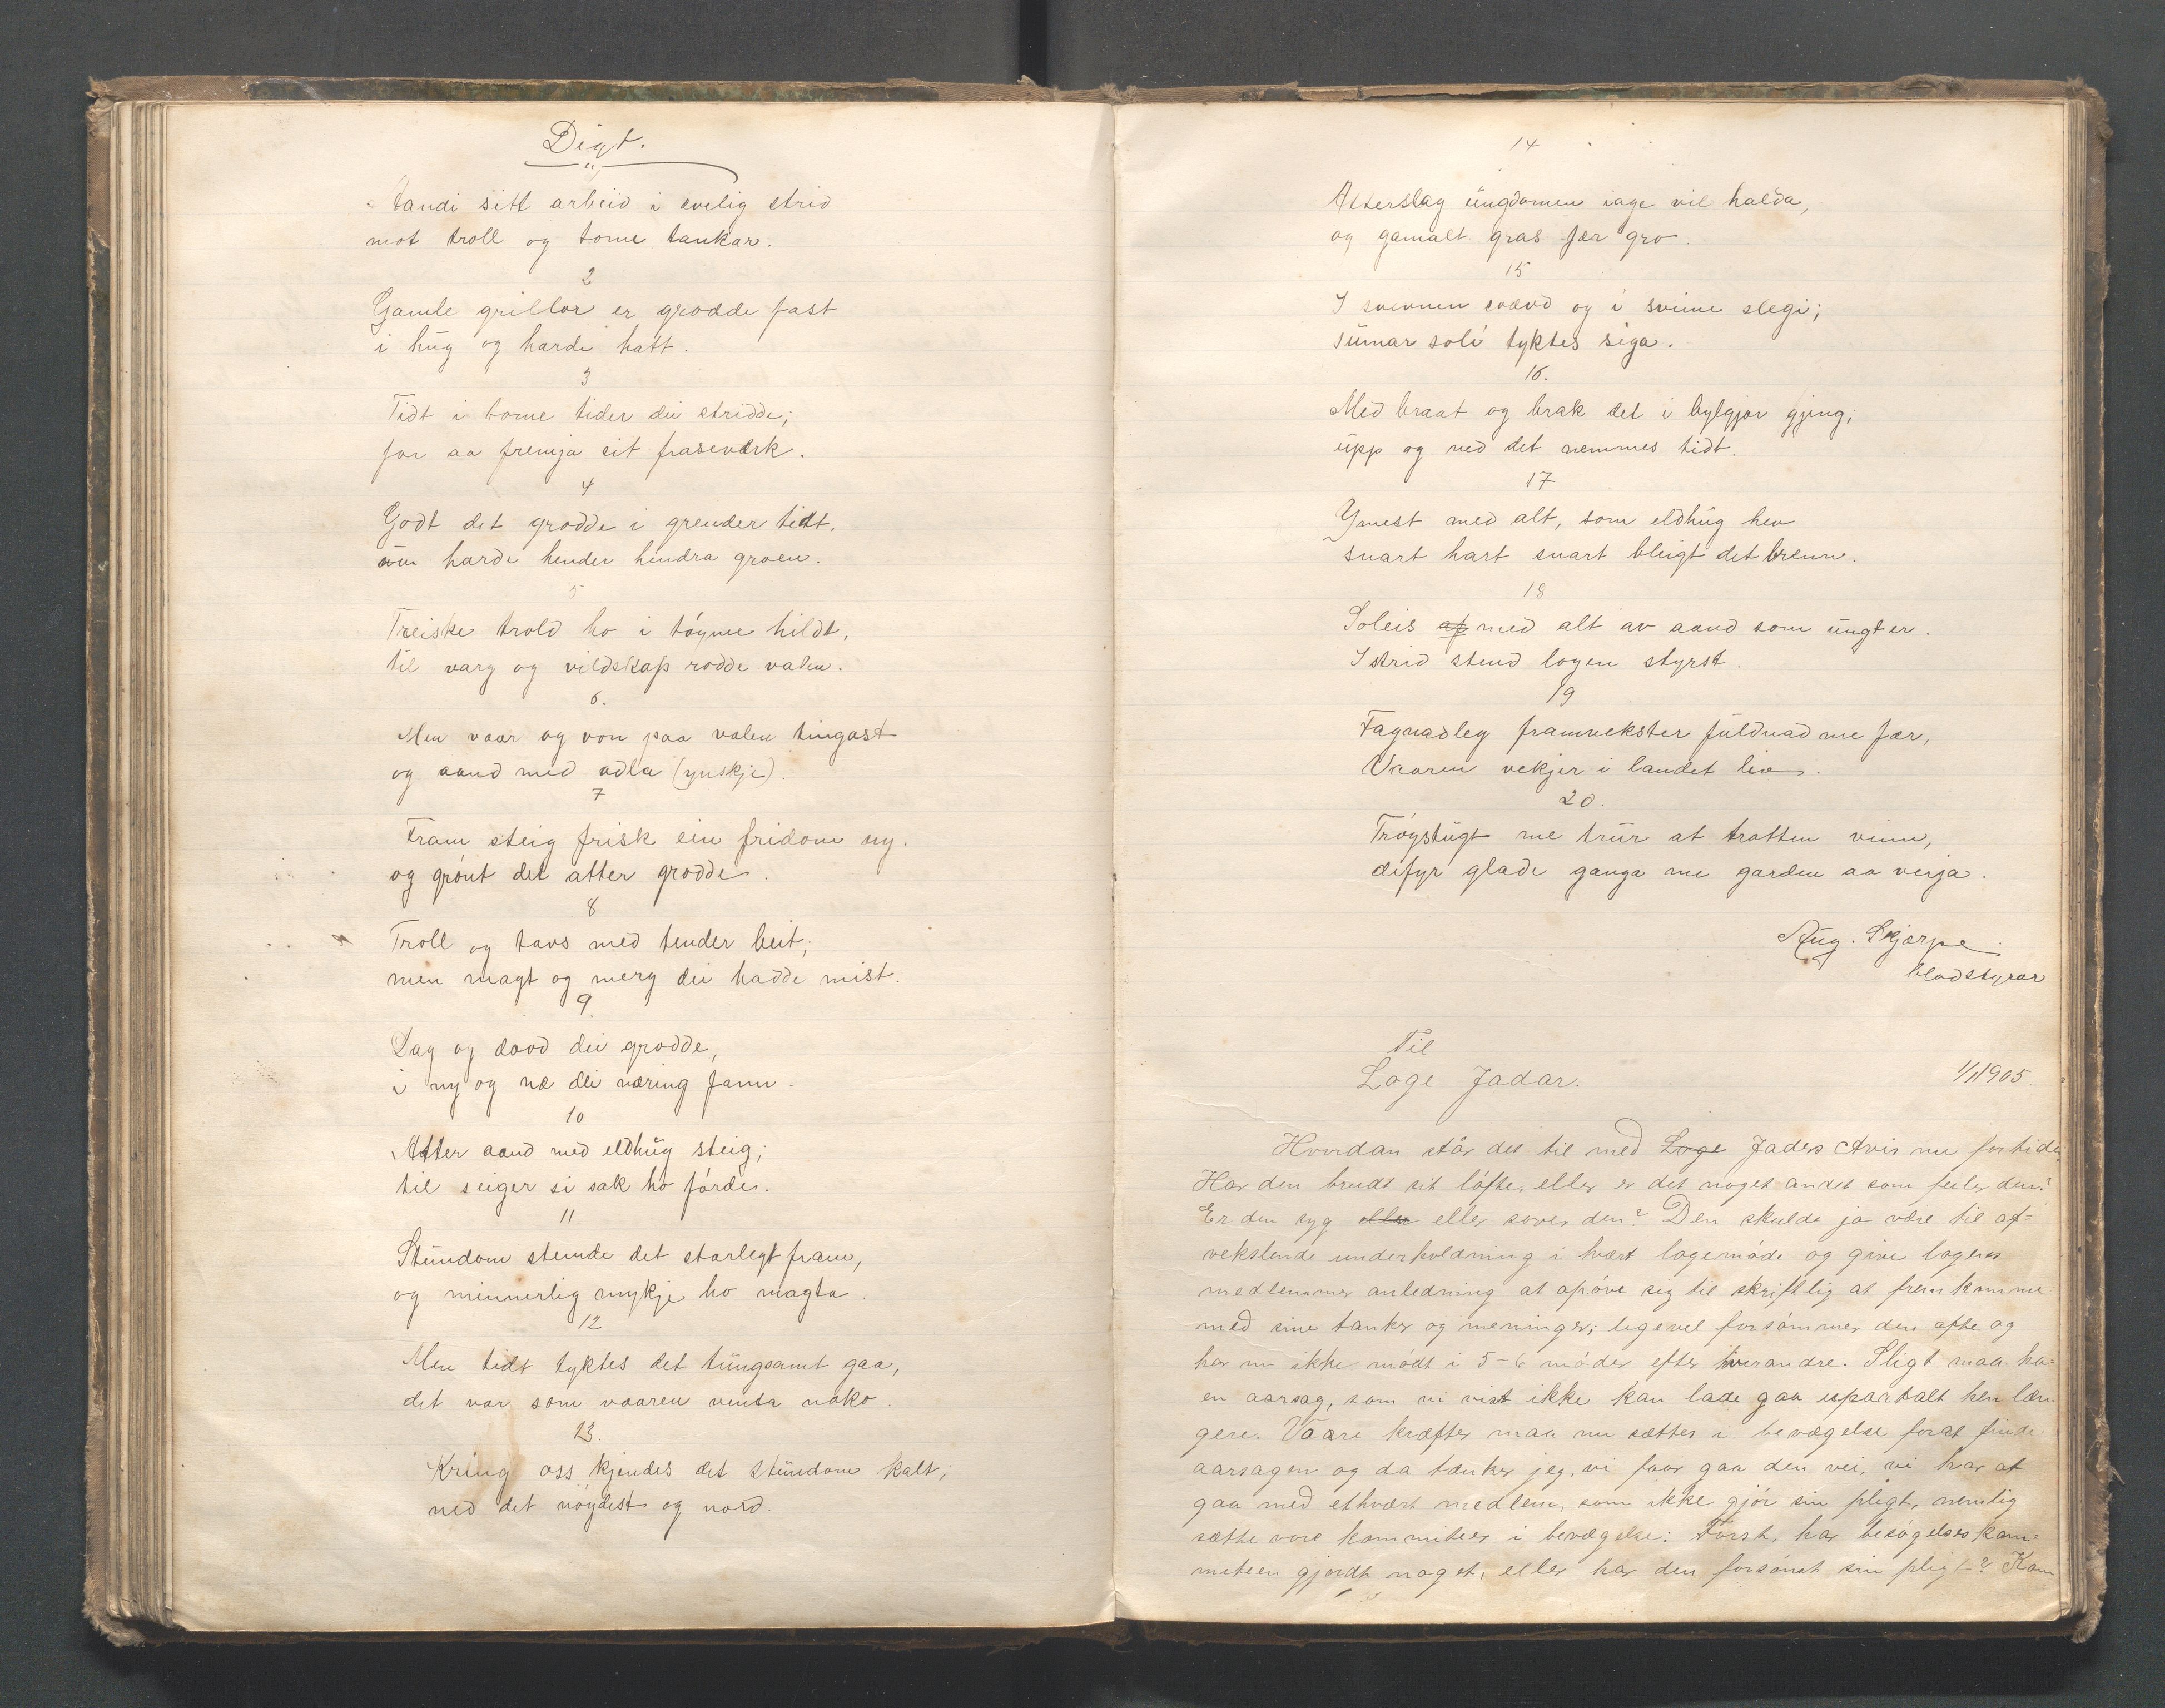 Digt.
Aandi sitt arbeid i evelig strid
mot troll og tome tankar.
2
Gamle grillor er grodde fast
i hug og harde hatt.
3
Tidt i tome tider dei stridde;
for aa fremja sit fraseverk.
4
Godt det grodde i grender tidt.
um harde hender hindra groen.
5
Treiske trold ho i tøyme hildt,
til varg og vildskap rodde valen.
6.
Men vaar og von paa valen tingast
og aand med adla (ynskje).
7
Fram steig frisk ein fridom ny.
og grønt det atter grodde.
8
Troll og tavs med tender beit;
men magt og merg dei hadde mist.
9.
Dag og daad dei grodde,
i ny og næ dei næring fann.
10
Atter aand med eldhug steig;
til seiger si sak ho førde.
11
Stundom stemde det starlegt fram,
og minnerlig mykje ho magta.
12
Men tidt tyktes det tungsamt gaa,
det var som vaaren venta noko.
13.
Kring oss kjendes det stundom kalt;
ned det nøydest og nord.
14
Atterslag ungdomen iage vil halda,
og gamalt gras fær gro.
15
I svevnen svævd og i svime slegi;
sumar soli tyktes siga.
16.
Med braat og brak det i bylgjor gjeng;
upp og ned det nemmes tidt.
17
Ymest med alt, som eldhug hev
snart hart snart bleigt det brenn.
18
Soleis af med alt av aand som ungt er.
I strid stend logen styrst.
19
Fagnadleg framvekster fuldnad me fær,
Vaaren vekjer i landet liv.
20.
Trøystugt me trur at tratten vinn,
difyr glade ganga me garden aa verja.
Aug. Skjærpe
bladstyrar
Til
Loge Jadar. 1/1 1905.
Hvordan står det til med Loge Jaders Avis nu for tide
Har den brudt sit løfte, eller er det noget andet som feiler den?
Er den syg eller eller sover den? Den skulde jo være til af-
vekslende underholdning i hvært logemøde og give logens
medlemmer anledning at opøve sig til skriftlig at fremkomme
med sine tanker og meninger; ligevel forsømmer den ofte og
har nu ikke mødt i 5-6 møder efter hverandre. Sligt maa ha-
en aarsag, som vi vist ikke kan lade gaa upaatalt hen læn-
gere. Vaare kræfter maa nu sættes i bevægelse forat finde
aarsagen og da tænker jeg, vi faar gaa den vei, vi har at
gaa med ethvært medlem, som ikke gjør sin pligt, nemlig
sætte vore kommiteer i bevægelse: Først, har besøgelseskom-
miteen gjordt noget, eller har den forsømt sin pligt? Kan